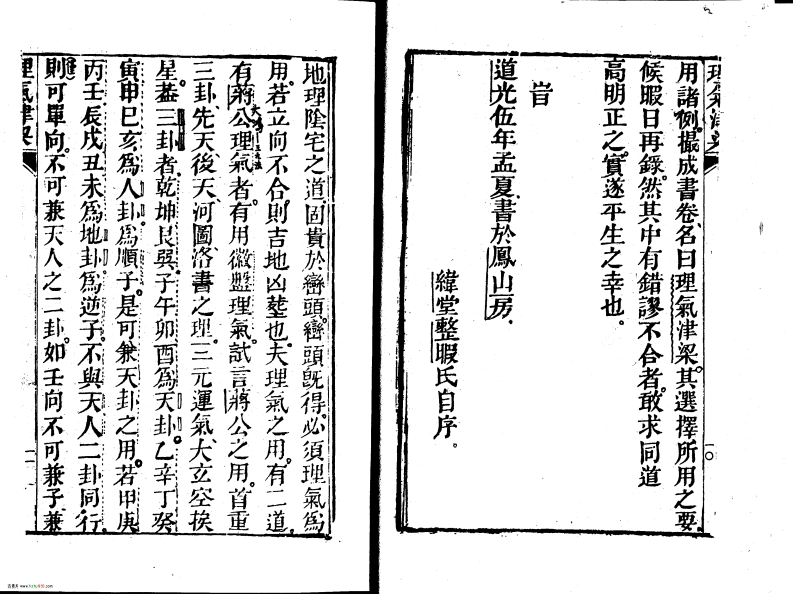 用諸例撮成書卷名曰理氣津梁其選擇所用之要
候暇日再錄然其中有錯謬不合者敢求同道
高明正之實遂平生之幸也
旹
道光伍年孟夏書於鳳山房
緯堂整暇氏自序
地理陰宅之道固貴於巒頭巒頭旣得必須理氣爲
用若立向不合則吉地凶塟也夫理氣之用有二道
有蔣公理氣者有用徽盤理氣試言蔣公之用首重
三卦先天後天河圖洛書之理三元運氣大玄空挨
星葢三卦者乾坤艮巽子午卯酉爲天卦乙辛丁癸
寅申巳亥爲人卦爲順子是可兼天卦之用若甲庚
丙壬辰戌丑未爲地卦爲逆子不與天人二卦同行
則可單向不可兼天人之二卦如壬向不可兼子兼
理氣津梁